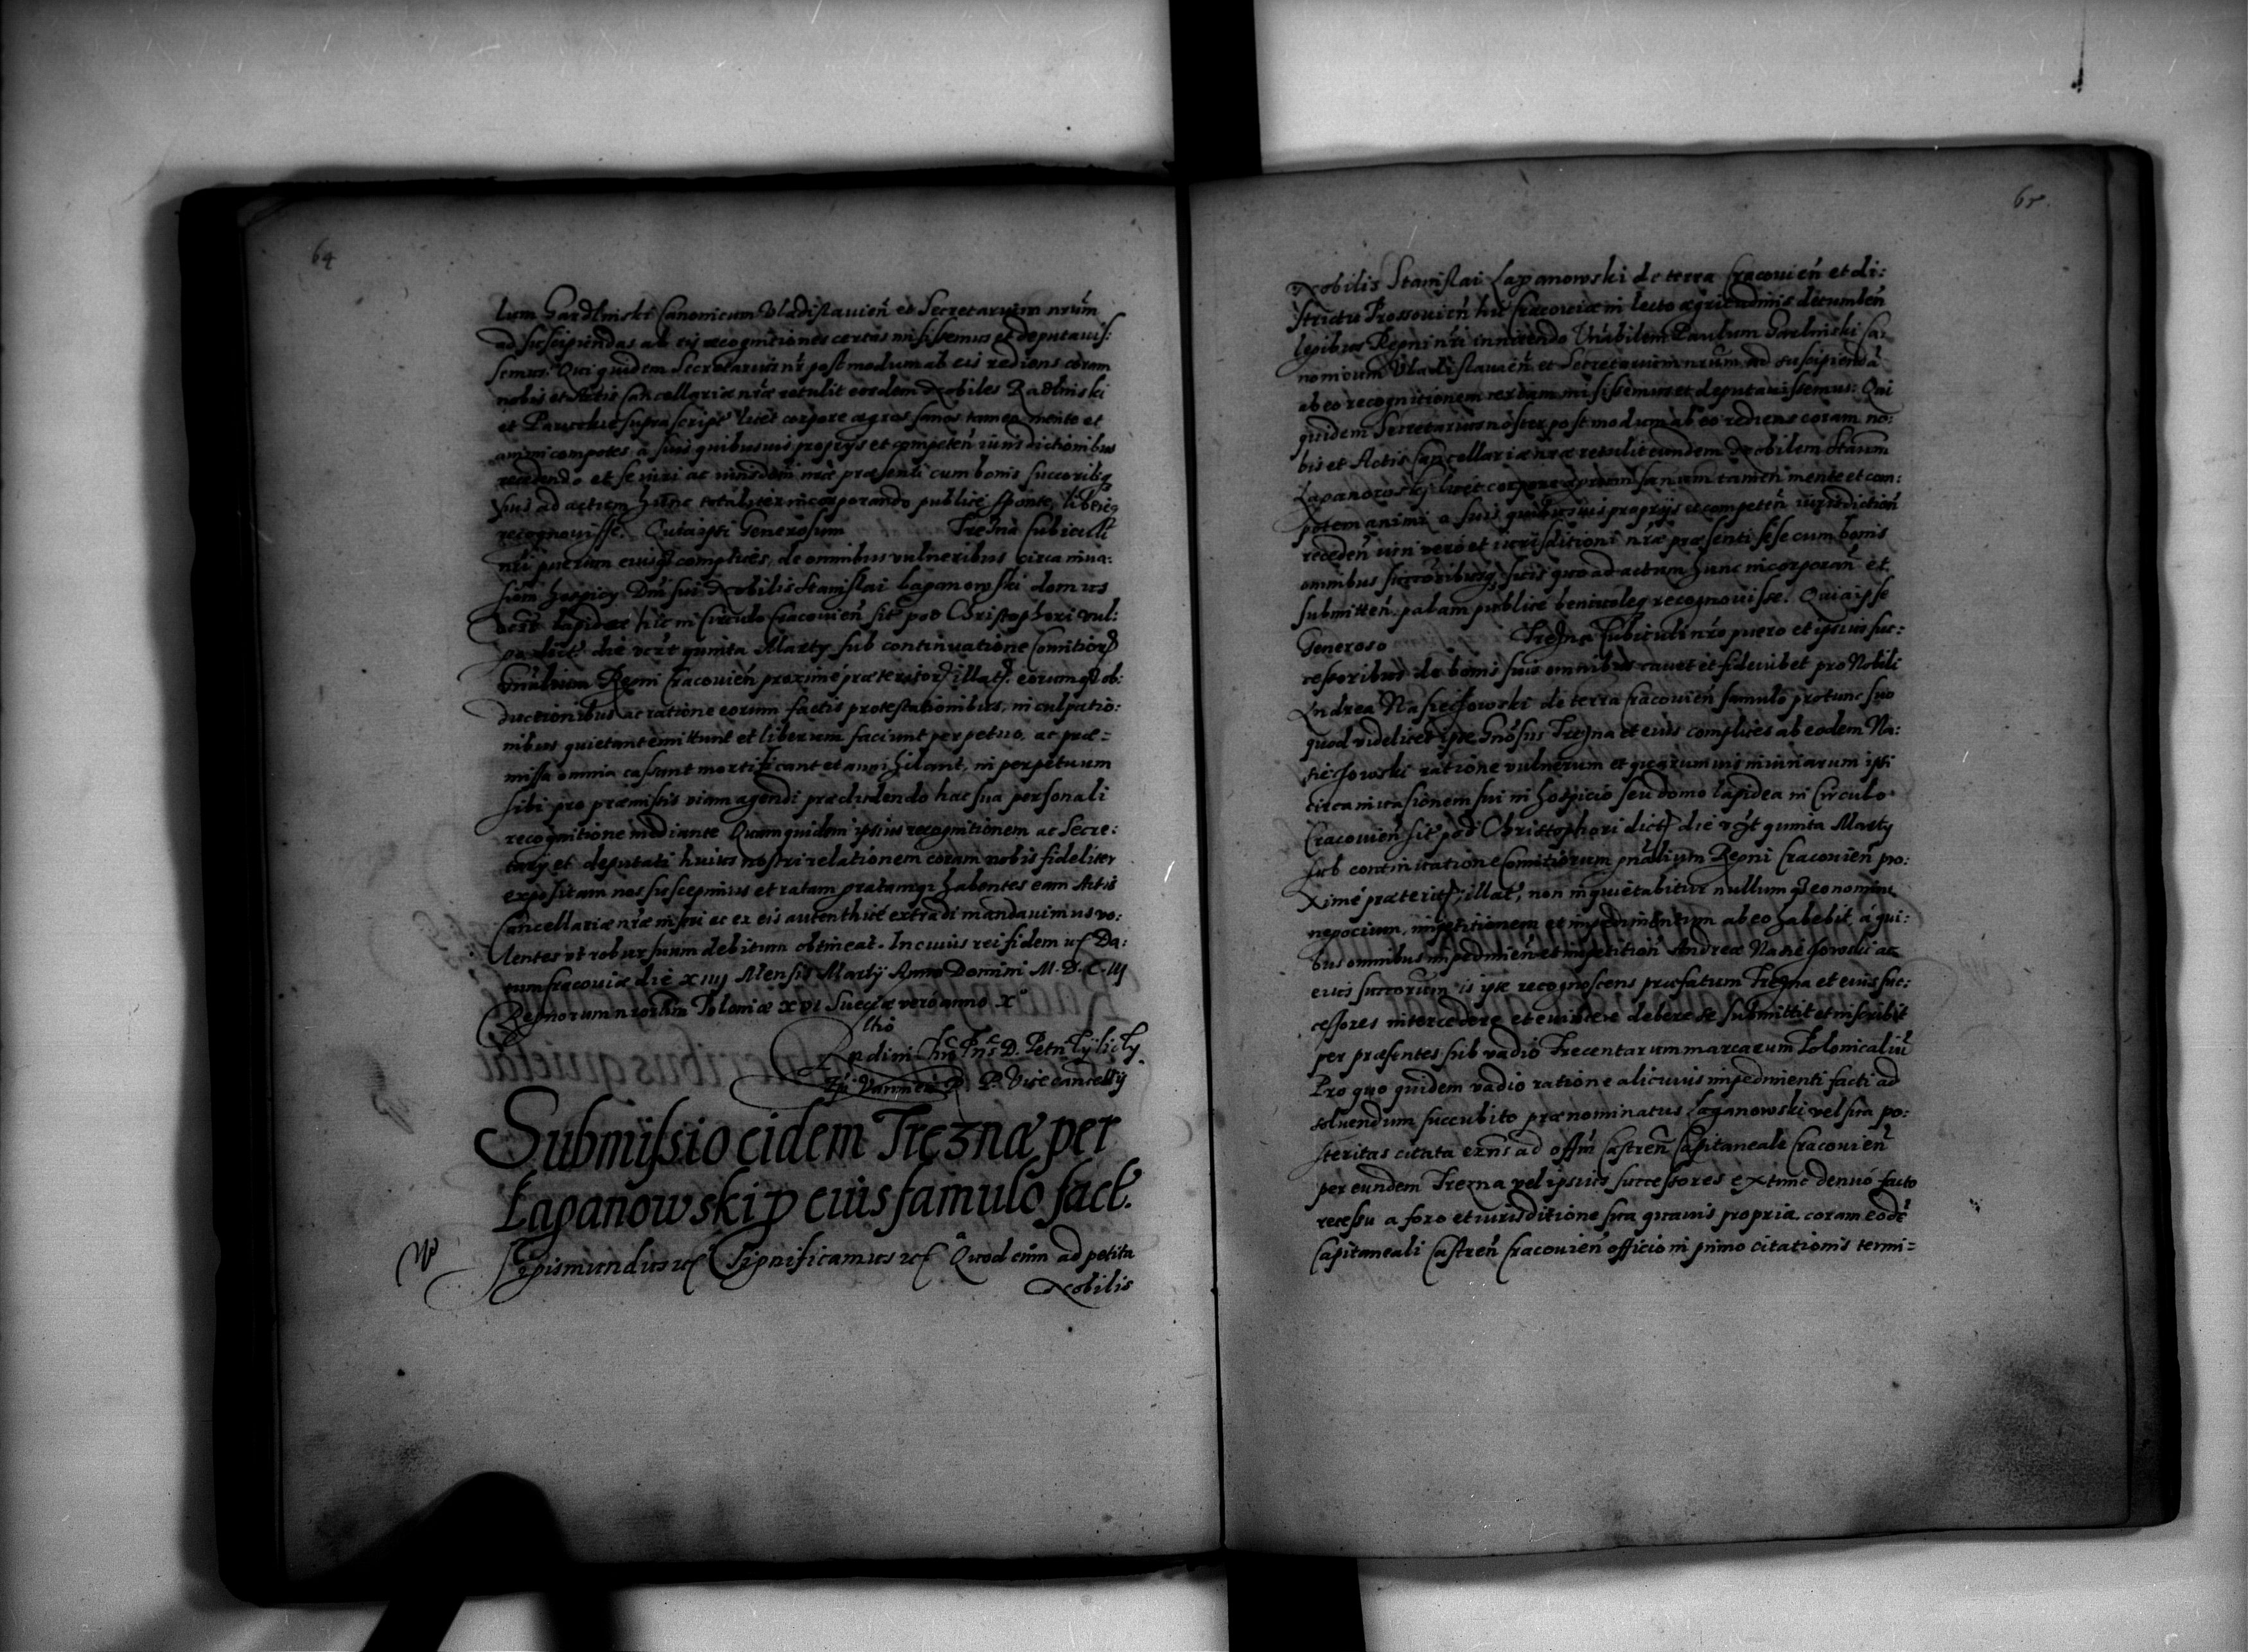 64
lum Gardliński Canonicum Vladislavień et Secretarium nrūm
ad suscipiendas ab eis recognitiones certas misissemus et deputavis:
semus. Qui quidem Secretarius nr̄ postmodum ab eis rediens coram
nobis et Actis Cancellariæ nræ retulit eosdem Nobiles Radliński
et suprascript' licet corpore ægros sanos tamen mente et
animi compotes, a suis quibusvis proprijs et competeń iurisdictionibus
recedendo et se iuri ac iurisdīni nræ præsenti cum bonis succoribq
suis ad actum hunc totaliter incorporando publice sponte, libereq
recognovisse. Quia ipsi Generosum Trezna Cubiculi
nri puerum eiusq complices, de omnibus vulneribus circa inva:
sionē hospicij Dn̄i sui Nobilis Stanislai Łaganowski domus
lapideæ hic in Circulo Cracovień sitæ pod Christophori vul:
go dict' die vero quinta Marty sub continuatione Comitiorȝ
Gnālium Regni Cracovień proximé præteritorȝ illatȝ. eorumqȝ ob:
ductionibus ac ratione eorum factis protestationibus, inculpatio:
nibus quietant emittunt et liberum faciunt perpetuo, ac præ=
missa omnia cassant mortificant et annihilant, in perpetuum
sibi pro præmissis viam agendi præcludendo hac sua personali
recognitione mediante Quam quidem ipsius recognitionem ac Secre:
tarij et deputati huius nostri relationem coram nobis fideliter
expositam nos suscepimus et ratam gratamqȝ habentes eam Actis
Cancellariæ nræ inseri ac ex eis autenthicé extradi mandavimus vo:
lentes vt robur suum debitum obtineat. In cuius rei fidem ec Da:
tum Cracoviæ die XIIIJ Mensis Martij Anno Domini M.D.C.IIJ
Regnorum nrorum Poloniæ XVI Sueciæ veró anno X°
D. Petri Tylicky
P. Vicecancellrij
Submissio eidem Trezna per
Łaganowski p eius famulo fact.
Sigismundus ec Significamus ec Quod cum ad petita
Nobilis
65
Nobilis Stanislai Łaganowski de terra Cracovień et di:
strictu Prossovień hic Cracoviæ in lecto ægritudinis decumbeń
legibus Regni nri innitendo Vnābilem Paulum Gardliński Ca:
nonicum Vladislavień et Secretarium nrūm ad suscipiendā
ab eo recognitionem certam misissemus et deputavissemus: Qui
quidem Secretarius noster postmodum ab eo rediens coram no:
bis et Actis Cancellariæ nræ retulit eundem Nobilem Stanm
Łaganowski licét corpore ægrum sanum tamen mente et com:
potem animi a suis quibusvis proprijs et competeń iurisdictioń
recedeń iuri veró et iurisditioni nræ præsenti sese cum bonis
omnibus succōribusq suis quo ad actum hunc incorporań et
submitteń, palam publicé benivoleq recognovisse. Quia ipse
Generoso Trezna Cubiculi nrō puero et ipsius suc:
cessoribus de bonis suis omnibus cavet et fideiubet pro Nobili
Andrea Nasiechowski de terra Cracovień famulo protunc suo
quod videlicet ipse Gnōsus Trezna et eius complices ab eodem Na:
siechowski ratione vulnerum et quarumvis iniuriarum ipsi
circa invasionem sui in hospicio seu domo lapidea in Circulo
Cracovień sit' pod Christophori dictȝ die vert' quinta Marty
sub continuatione Comitiorum gnālium Regni Cracovień pro:
ximé præteritȝ, illat', non inquietabitur nullumqȝ eo nomine
negocium, impetitionem et impedimentum ab eo habebit, á qui:
bus omnibus impedimeń et impetitioń Andreæ Nasiechowski ac
eius succorum is ipse recognoscens præfatum Trezna et eius suc:
cessores intercedere et evincere debere se submittit et inscribit
per præsentes sub vadio Trecentarum marcarum Polonicaliū
Pro quo quidem vadio ratione alicuius impedimenti facti ad
solvendum succubito prænominatus Łaganowski vel sua po:
steritas citata erns ad offm̄ Castreń Capitaneale Cracovień
per eundem Trezna vel ipsius successores extunc denuó facto
recessu a foro et iurisditione sua quavis propria. coram eodē
Capitaneali Castreń Cracovień officio in primo citationis termi=